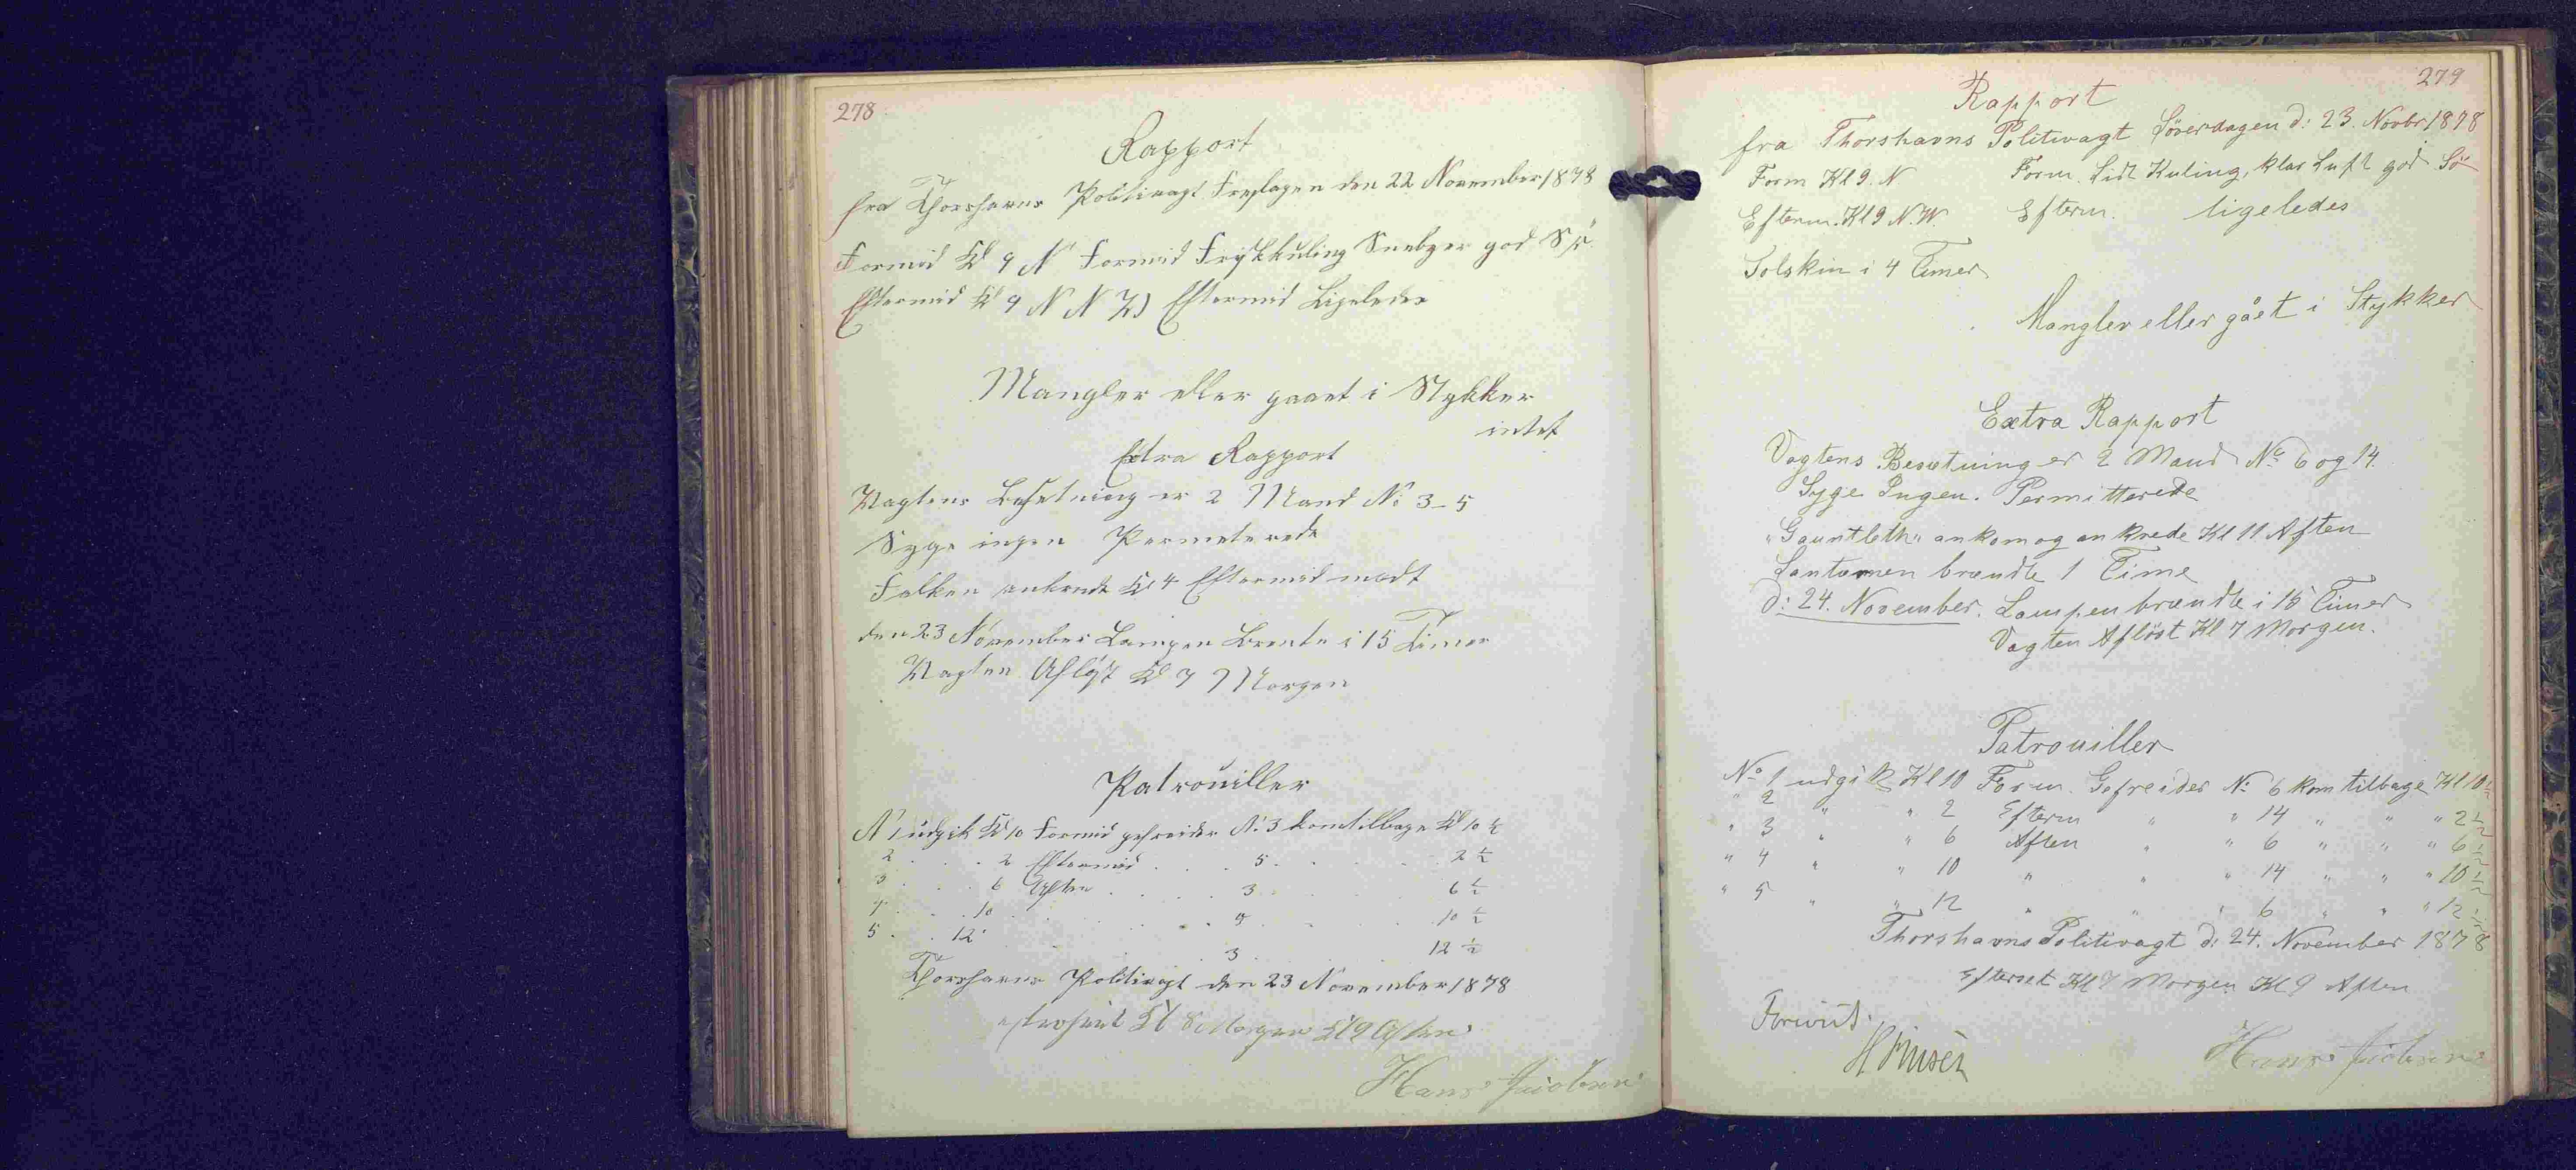 278
Rapport
fra Thorshavns Politivagt Fredagen den 22 November 1878
Formid Kl 9 N Formid Friskkuling Snebyer god Sö
Eftermid Kl 9 N N W Eftermid Ligeledes
Mangler eller gaaet i Stykker
intet
Extra Rapport
Vagtens Besetning er 2 Mand No 3-5
Syge ingen Permeterede
Falken ankrede Kl 4 Eftermid
den 23 November Lampen Brente i 15 Timer
Vagten Aflöst Kl 7 Morgen
Patrouiller
No 1 udgik Kl 10 Formid gefreider No 3 kom tilbage Kl 10 ½
2 . . . 2 Eftermid . . . 5 . . . 2 ½
3 . . . 6 Aften . . . 3 . . . 6 ½
4 . . . 10 . . . 5 . . . 10 ½
5 . . . 12 . . . 3 . . . 12 ½
Thorshavns Politivagt den 23 November 1878
efterseet Kl 8 Morgen Kl 9 Aften
Hans Jacobsen
279
Rapport
fra Thorshavns Politivagt Löverdagen d: 23. Novbr 1878
Form Kl 9. N Form. Lidt Kuling, klar Luft god Sö
Efterm. Kl 9 N.W. Efterm. ligeledes
Solskin i 4 Timer
Mangler eller gået i Stykker
Extra Rapport
Vagtens Besætning er 2 Mand No 6 og 14.
Syge Ingen. Permitterede
"Gauntleth" ankom og ankrede Kl 11 Aften
Lanternen brændte 1 Time
d: 24. November. Lampen brændte i 15 Timer
Vagten Aflöst Kl 7 Morgen.
Patrouiller
No 1 udgik Kl 10 Form. Gefreider No 6 kom tilbage Kl 10 ½
" 2 " " 2 Efterm " " 14 " " " 2 ½
" 3 " " 6 Aften " " 6 " " " 6 ½
" 4 " " 10 " " " 14 " " " 10 ½
" 5 " " 12 " " " 6 " " " 12 ½
Thorshavns Politivagt d: 24. November 1878
Efterset Kl 9 Morgen Kl 9 Aften
Forevist.
Hans Jacobsen